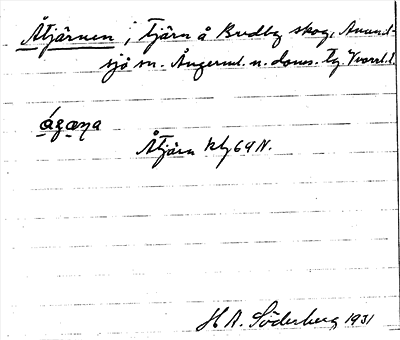 Åtjärnen, tjärn å Bredby skog, Anund-
sjö sn. Ångerml. n. doms. Tg.
ágæna
Åtjärn kbl 69 N.
H. A. Söderberg 1931